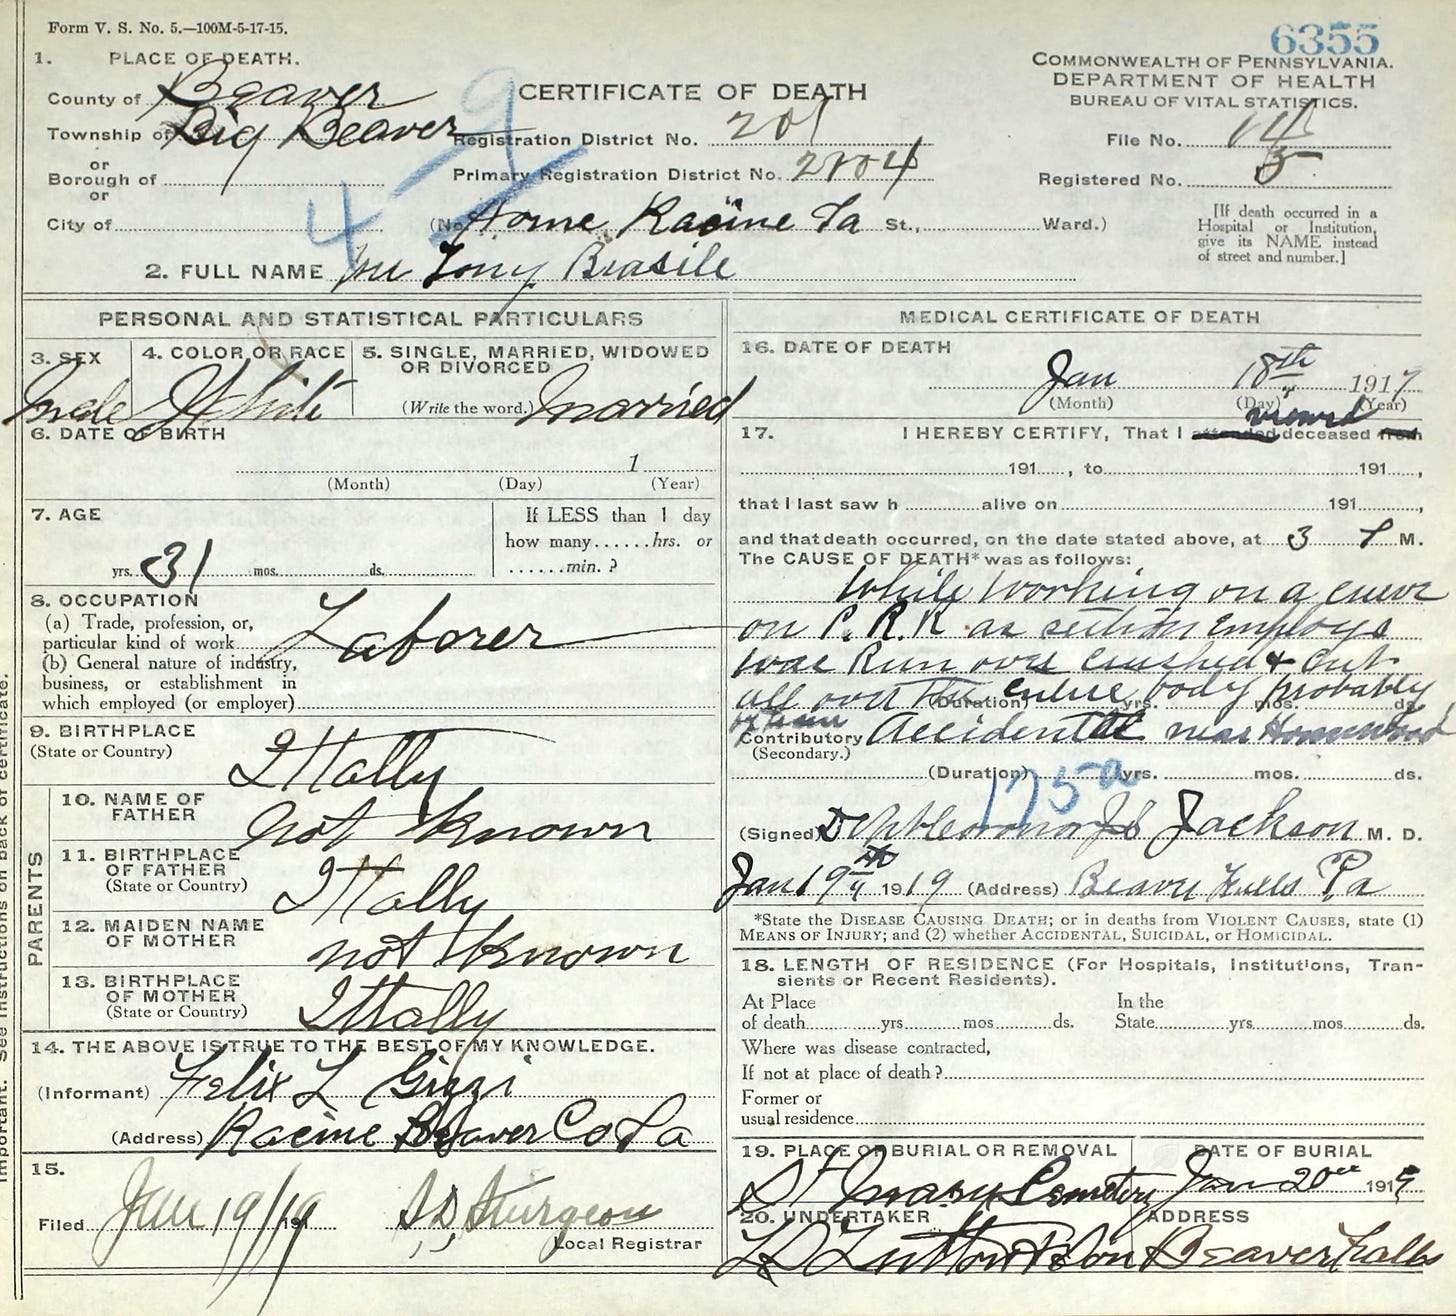 Form V. S. No. 5.—100M-5-17-15.
6355
1. PLACE OF DEATH.
County of Beaver
Township of Big Beaver
or
Borough of
or
City of
CERTIFICATE OF DEATH
Registration District No. 201
Primary Registration District No. 2104
(No. Home Racine Pa St., Ward.)
COMMONWEALTH OF PENNSYLVANIA.
DEPARTMENT OF HEALTH
BUREAU OF VITAL STATISTICS.
File No.
Registered No. 3
[If death occurred in a
Hospital or Institution,
give its NAME instead
of street and number.]
9
4
2. FULL NAME Mr Tony Brasile
PERSONAL AND STATISTICAL PARTICULARS
3. SEX
Male
4. COLOR OR RACE
White
5. SINGLE, MARRIED, WIDOWED
OR DIVORCED
(Write the word.) Married
6. DATE OF BIRTH
1
(Month) (Day) (Year)
7. AGE
31 yrs. mos. ds.
If LESS than 1 day
how many......hrs. or
......min.?
8. OCCUPATION
(a) Trade, profession, or,
particular kind of work Laborer
(b) General nature of industry,
business, or establishment in
which employed (or employer)
9. BIRTHPLACE
(State or Country) Ittally
PARENTS
10. NAME OF
FATHER not known
11. BIRTHPLACE
OF FATHER
(State or Country) Ittally
12. MAIDEN NAME
OF MOTHER not known
13. BIRTHPLACE
OF MOTHER
(State or Country) Ittally
14. THE ABOVE IS TRUE TO THE BEST OF MY KNOWLEDGE.
(Informant) Felix L Gizzi
(Address) Racine Beaver Co Pa
15.
Filed Jan 19/19 191 S.D. Sturgeon
Local Registrar
MEDICAL CERTIFICATE OF DEATH
16. DATE OF DEATH
Jan 18th 1919
(Month) (Day) (Year)
17. I HEREBY CERTIFY, That I attended viewed deceased from
191...., to 191....,
that I last saw h alive on 191....,
and that death occurred, on the date stated above, at 3 P M.
The CAUSE OF DEATH* was as follows:
While working on a curve
on P. R. R. as section employe
was Run over crushed & cut
all over the entire body probably
(Duration) yrs. mos. ds.
by train
Contributory Accidental near Homewood
(Secondary.)
(Duration) yrs. mos. ds.
175a
(Signed) Jackson M. D.
Jan 19th 1919 (Address) Beaver Falls Pa
*State the DISEASE CAUSING DEATH; or in deaths from VIOLENT CAUSES, state (1)
MEANS OF INJURY; and (2) whether ACCIDENTAL, SUICIDAL, or HOMICIDAL.
18. LENGTH OF RESIDENCE (For Hospitals, Institutions, Tran-
sients or Recent Residents).
At Place In the
of death yrs. mos. ds. State yrs. mos. ds.
Where was disease contracted,
If not at place of death?
Former or
usual residence
19. PLACE OF BURIAL OR REMOVAL
St Marys Cemetery
DATE OF BURIAL
Jan 20 1919
20. UNDERTAKER
Lutton & Son
ADDRESS
Beaver Falls
Important. See instructions on back of certificate.